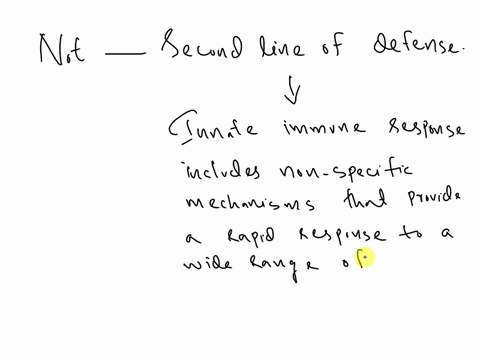 Not — Second line of defense.
(Innate immune response
includes non-specific
mechanisms that provide
a rapid response to a
wide range of